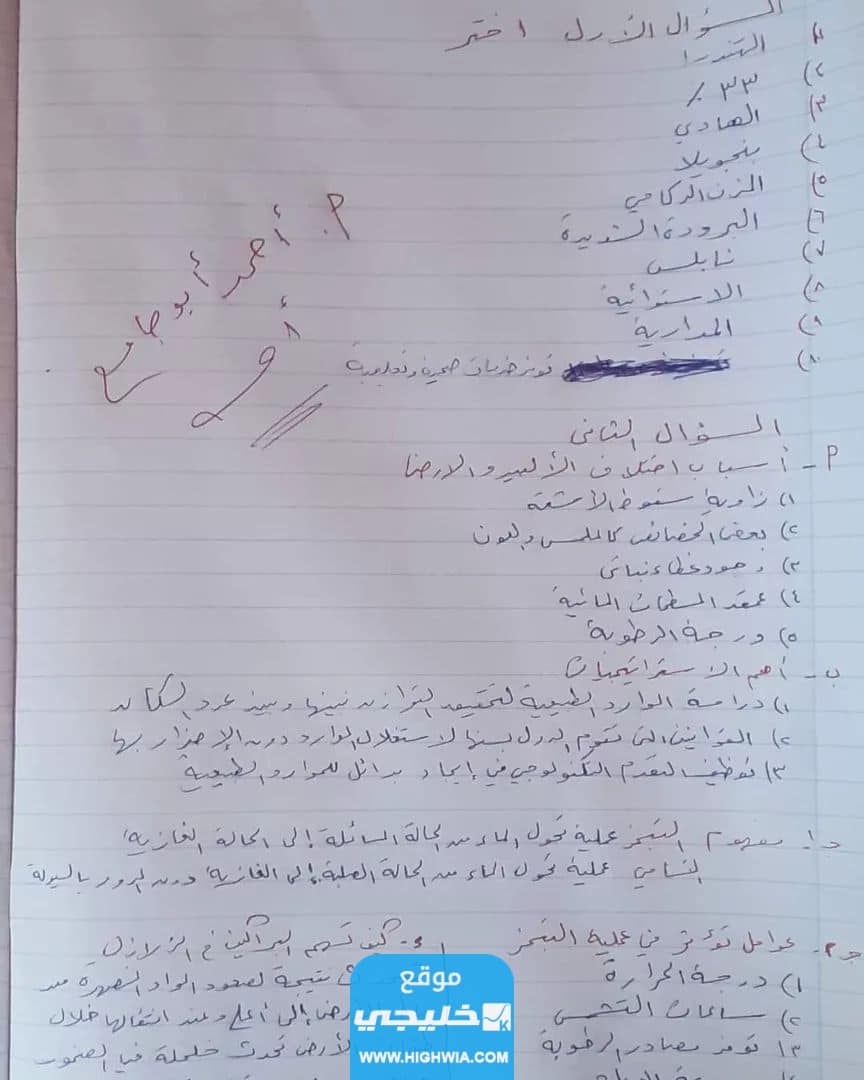 السؤال الأول اختر
١) التندرا
٢) ٣٣ ٪
٣) الهادي
٤) بنجويلا
٥) المزن الركامي
٦) البرودة الشديدة
٧) نابلس
٨) الاستوائية
٩) المدارية
١٠) توفر خدمات صحية وتعليمية
م. أحمد أبو جامع
السؤال الثاني
أ- أسباب اختلاف الألبيدو الارضي
١) زاوية سقوط الأشعة
٢) بعض الخصائص كالملمس واللون
٣) وجود غطاء نباتي
٤) عمق المسطحات المائية
٥) درجة الرطوبة
ب- أهم الاستراتيجيات
١) دراسة الموارد الطبيعية لتحقيق التوازن بينها وبين عدد السكان
٢) القوانين التي تقوم الدول بسنها لاستغلال الموارد دون الإضرار بها
٣) توظيف التقدم التكنولوجي في إيجاد بدائل للموارد الطبيعية
ج١- مفهوم التبخر عملية تحول الماء من الحالة السائلة إلى الحالة الغازية
التسامي عملية تحول الماء من الحالة الصلبة إلى الغازية دون المرور بالسيولة
ج٢- عوامل تؤثر في عملية التبخر
١) درجة الحرارة
٢) ساعات التشمس
٣) توفر مصادر الرطوبة
د- كيف تسهم البراكين في الزلازل
نتيجة لصعود المواد المنصهرة من
الأرض إلى أعلى وعند انتقالها خلال
الأرض تحدث خلخلة في الصخور
موقع
خليجي
WWW.HIGHWIA.COM